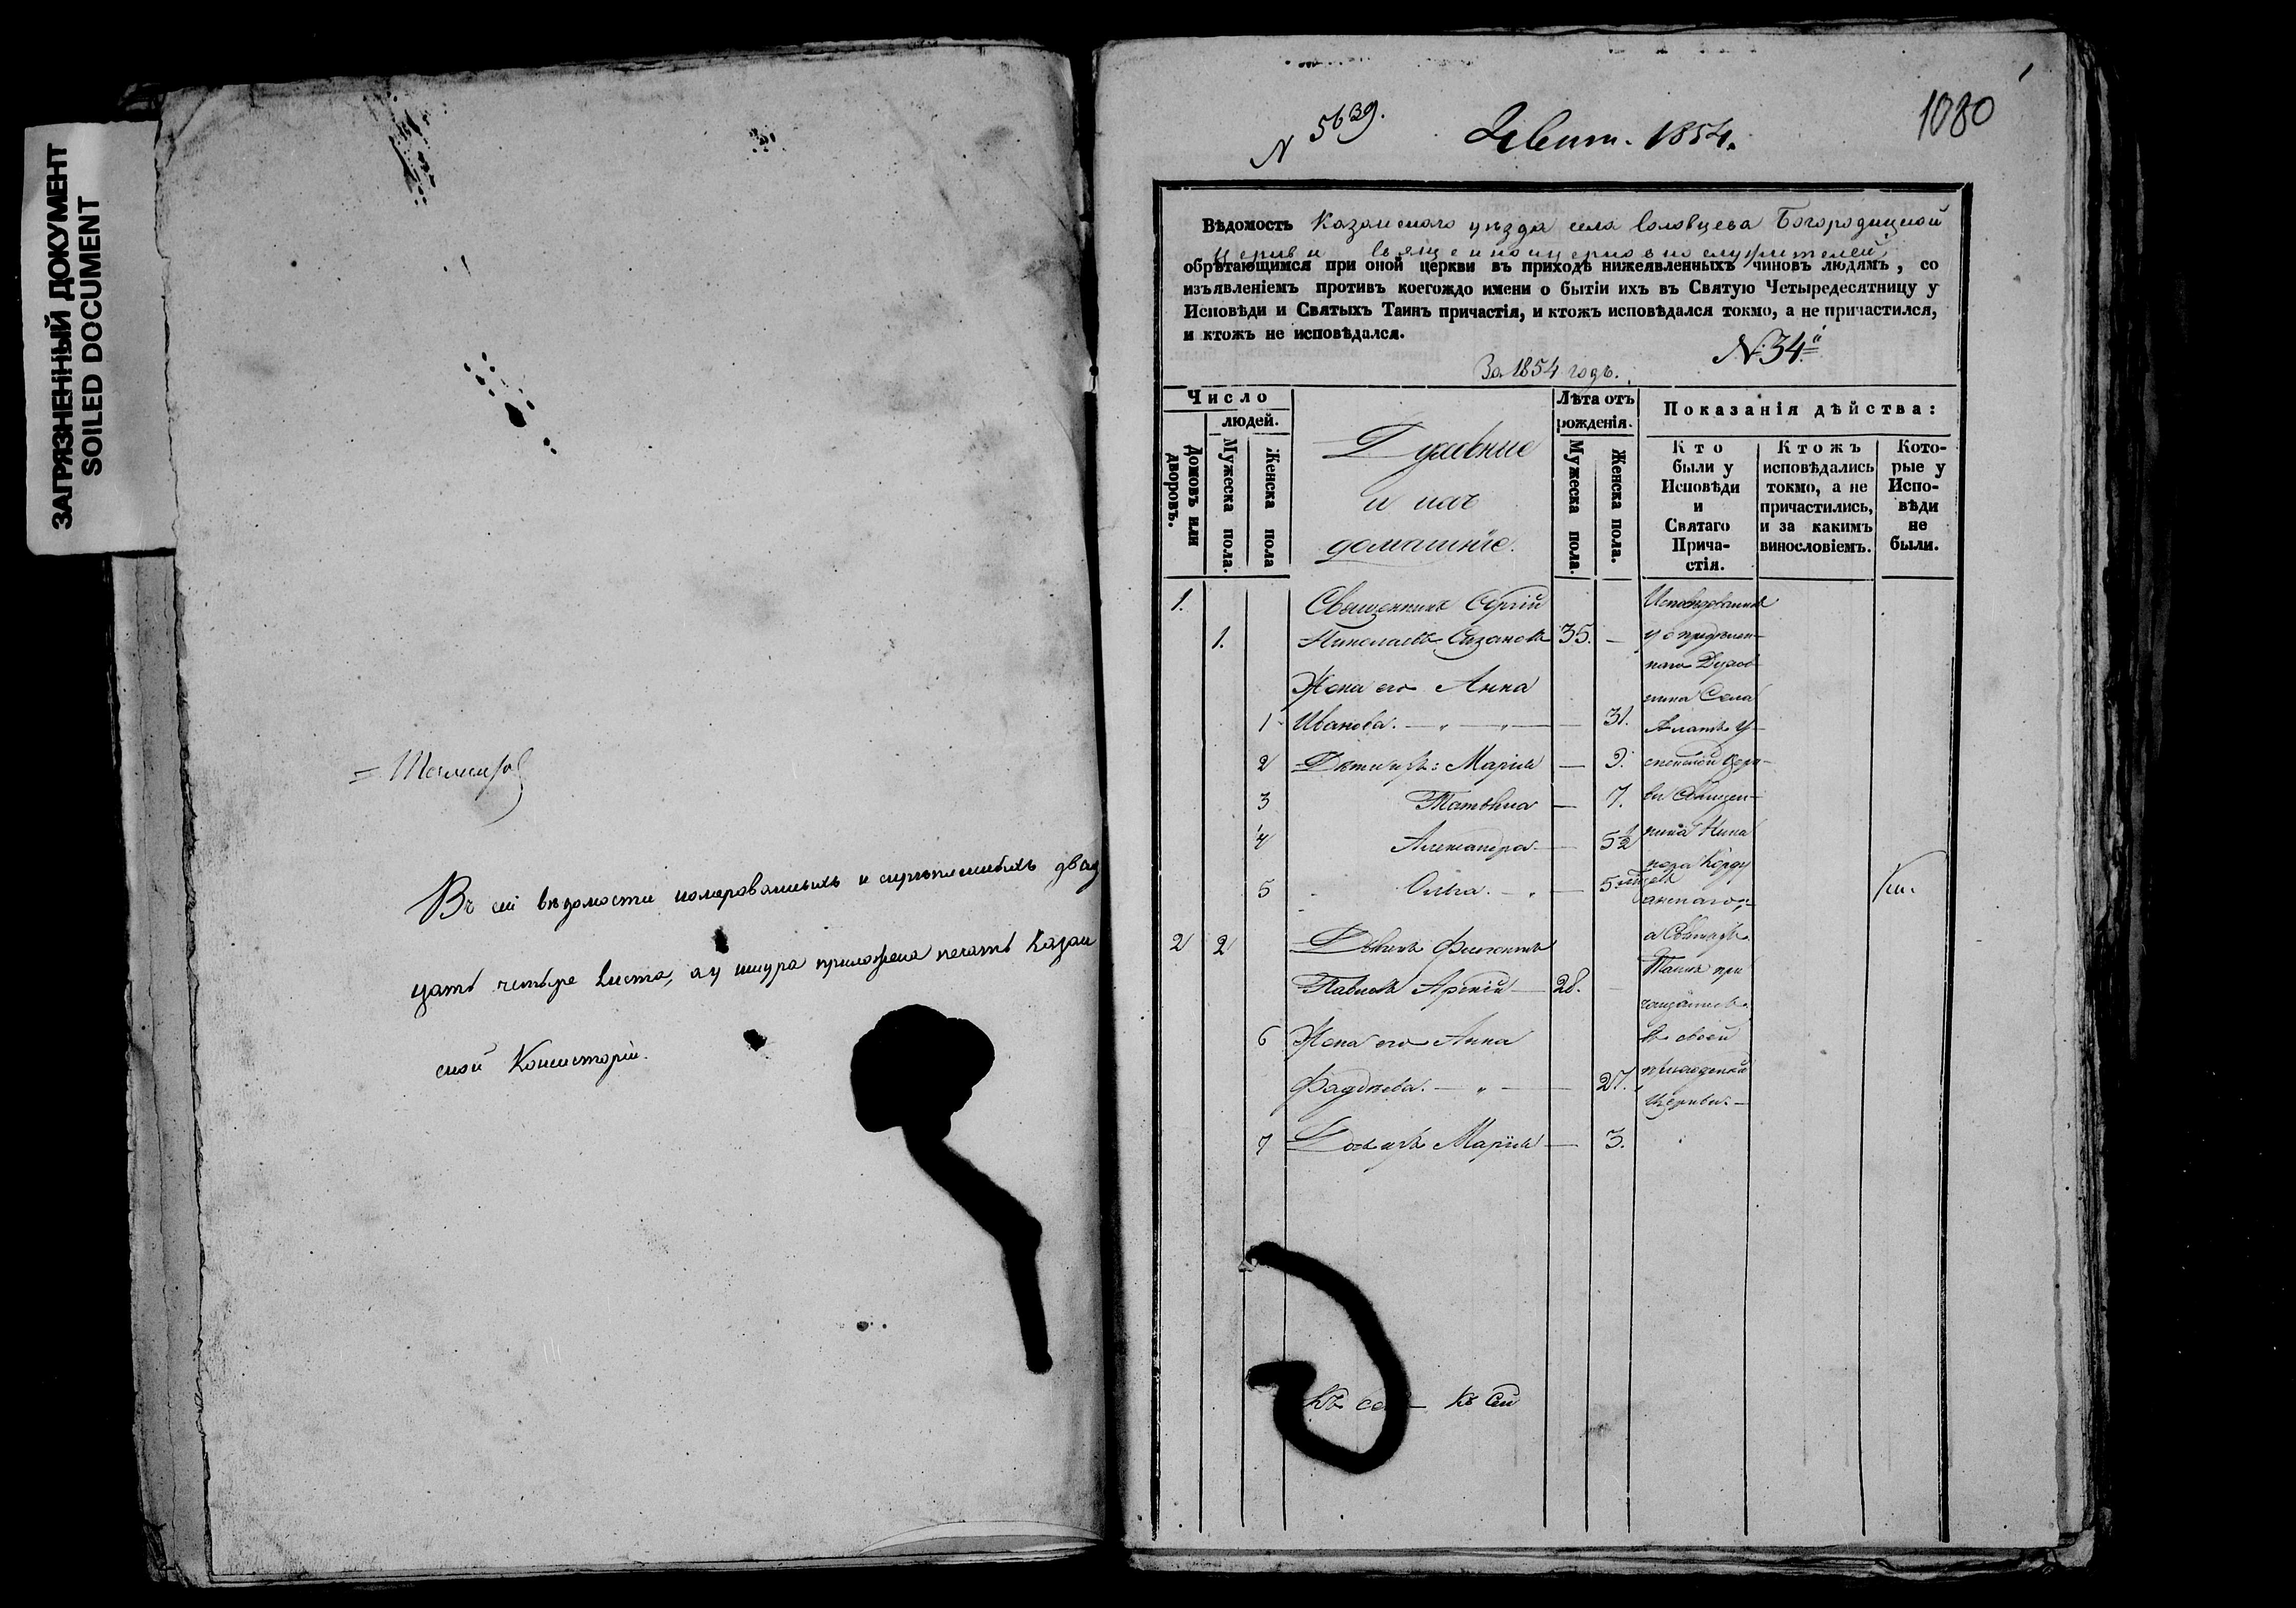 ЗАГРЯЗНЕННЫЙ ДОКУМЕНТ
SOILED DOCUMENT
Въ сей вѣдомости номерованныхъ и скрѣпленныхъ двад
цать четыре листа, а у шнура приложена печать Казан
ской Консисторіи.
N 5639.
1854.
1080
Вѣдомость Казанскаго уѣзда села Соловцева Богородицкой
церкви священноцерковнослужителей,
обрѣтающимся при оной церкви въ приходѣ нижеявленныхъ чиновъ людямъ, со
изъявленіемъ противъ коегождо имени о бытіи ихъ въ Святую Четыредесятницу у
Исповѣди и Святыхъ Таинъ причастія, и ктожъ исповѣдался токмо, а не причастился,
и ктожъ не исповѣдался.
N 34.й
За 1854 годъ.
Число
людей.
Домовъ или дворовъ.
Мужеска пола.
Женска пола
Духовные
и ихъ
домашніе.
Лѣта отъ
рожденія.
Мужеска пола.
Женска пола.
Показанія дѣйства:
Кто
были у
Исповѣди
и
Святаго
Прича-
стія.
Ктожъ
исповѣдались
токмо, а не
причастились,
и за какимъ
винословіемъ.
Кото-
рые у
Испо-
вѣди
не
были.
1. Священникъ Сергій
1. Николаевъ 35. —
Жена его Анна
1 Иванова. — „ — „ — 31.
2 Дѣти ихъ: Марія — 9.
3 Татьяна — 7.
4 Александра — 5½
5 Ольга. — „ — 5
2 2 Дьячекъ Филиппъ
Павловъ Арскій — 28. —
6 Жена его Анна
Фадѣева. — „ — 27.
7 Дочь ихъ Марія — 3.
у опредѣлен-
наго Духов
ника Села
Алатъ У-
спенской церк-
ви Священ-
ника
а Святыхъ
Таинъ при
чащались
въ своей
приходской
церкви. —
Къ сей Къ сей